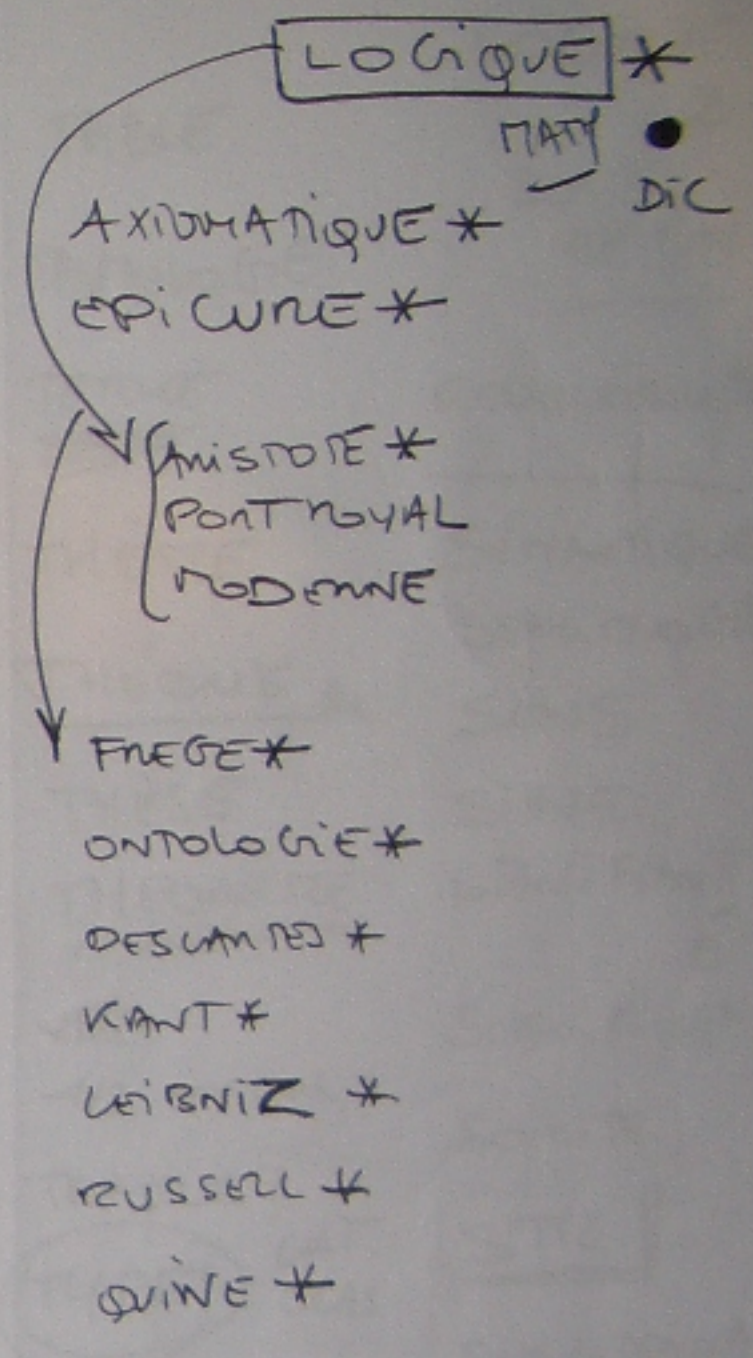 LOGIQUE *
MATY •
DIC
AXIOMATIQUE *
EPICURE *
ARISTOTE *
PORT ROYAL
MODERNE
FREGE *
ONTOLOGIE *
DESCARTES *
KANT *
LEIBNIZ *
RUSSELL *
QUINE *